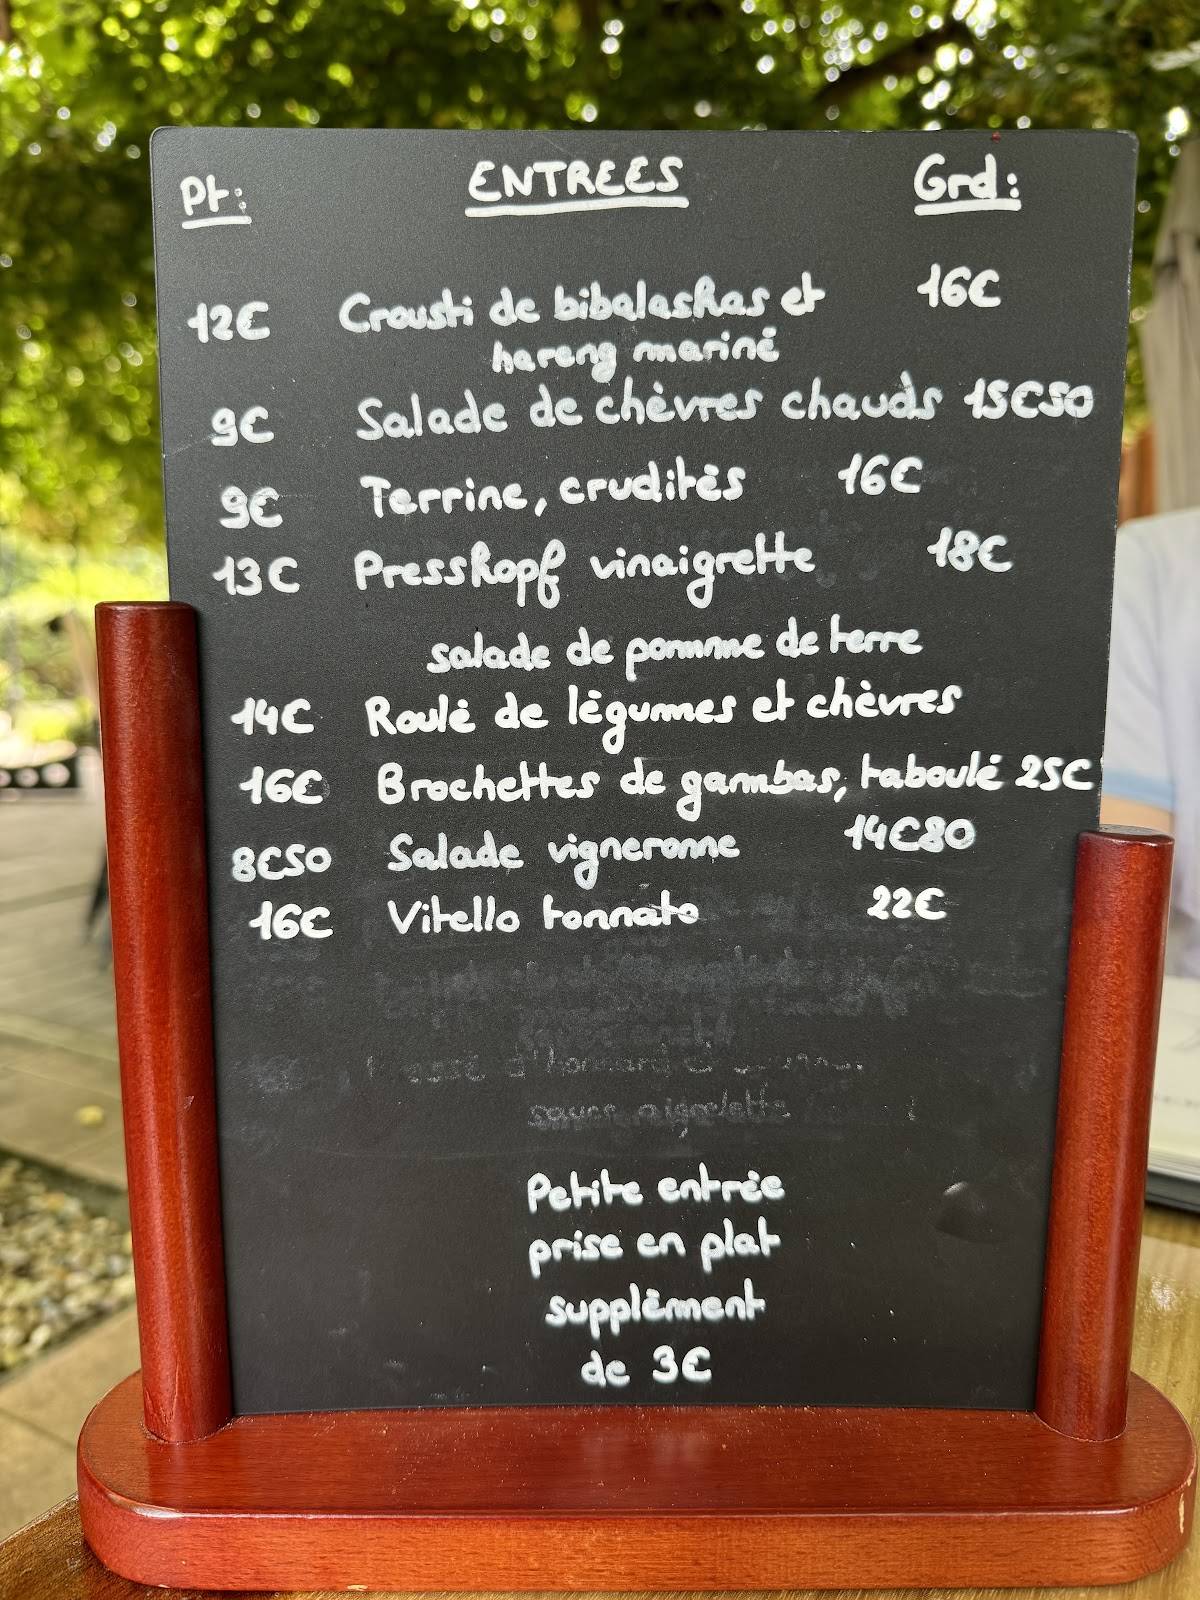 Pt: ENTREES Grd:
12€ Crousti de bibalaskas et 16€
hareng mariné
9€ Salade de chèvres chauds 15€50
9€ Terrine, crudités 16€
13€ Presskopf vinaigrette 18€
salade de pomme de terre
14€ Roulé de légumes et chèvres
16€ Brochettes de gambas, taboulé 25€
8€50 Salade vigneronne 14€80
16€ Vitello tonnato 22€
d'homard
Petite entrée
prise en plat
supplément
de 3€